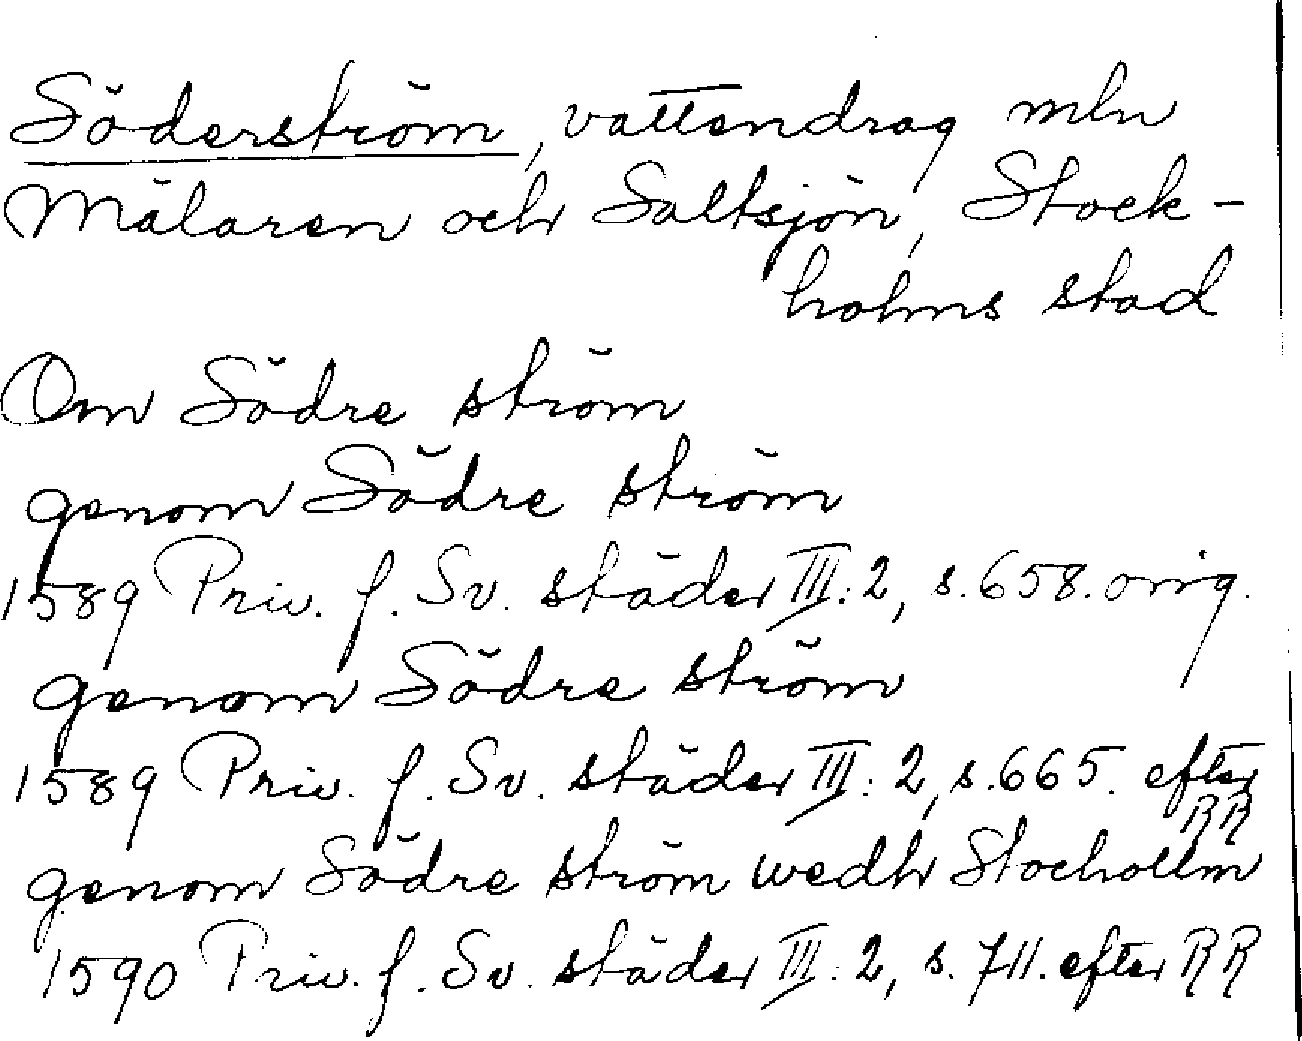 Söderström, vattendrag mln
Mälaren och Saltsjön, Stock-
holms stad
Om Södre ström
genom Södre ström
1589 Priv. f. Sv. städer III:2, s. 658. orig.
genom Södre ström
1589 Priv. f. Sv. städer III:2, s. 665. efter
RR
genom Södre ström wedh Stocholm
1590 Priv. f. Sv. städer III:2, s. 711. efter RR